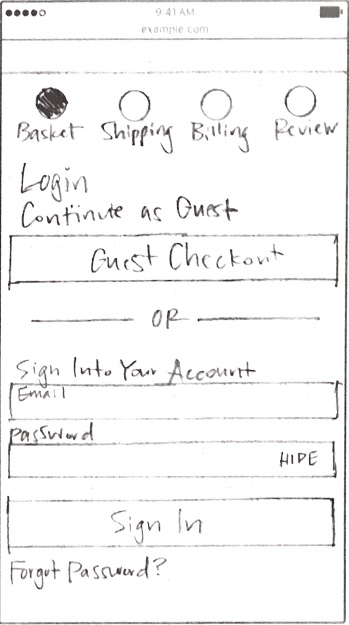 9:41 AM
example.com
Basket Shipping Billing Review
Login
Continue as Guest
Guest Checkout
OR
Sign Into Your Account
Email
Password
HIDE
Sign In
Forgot Password?